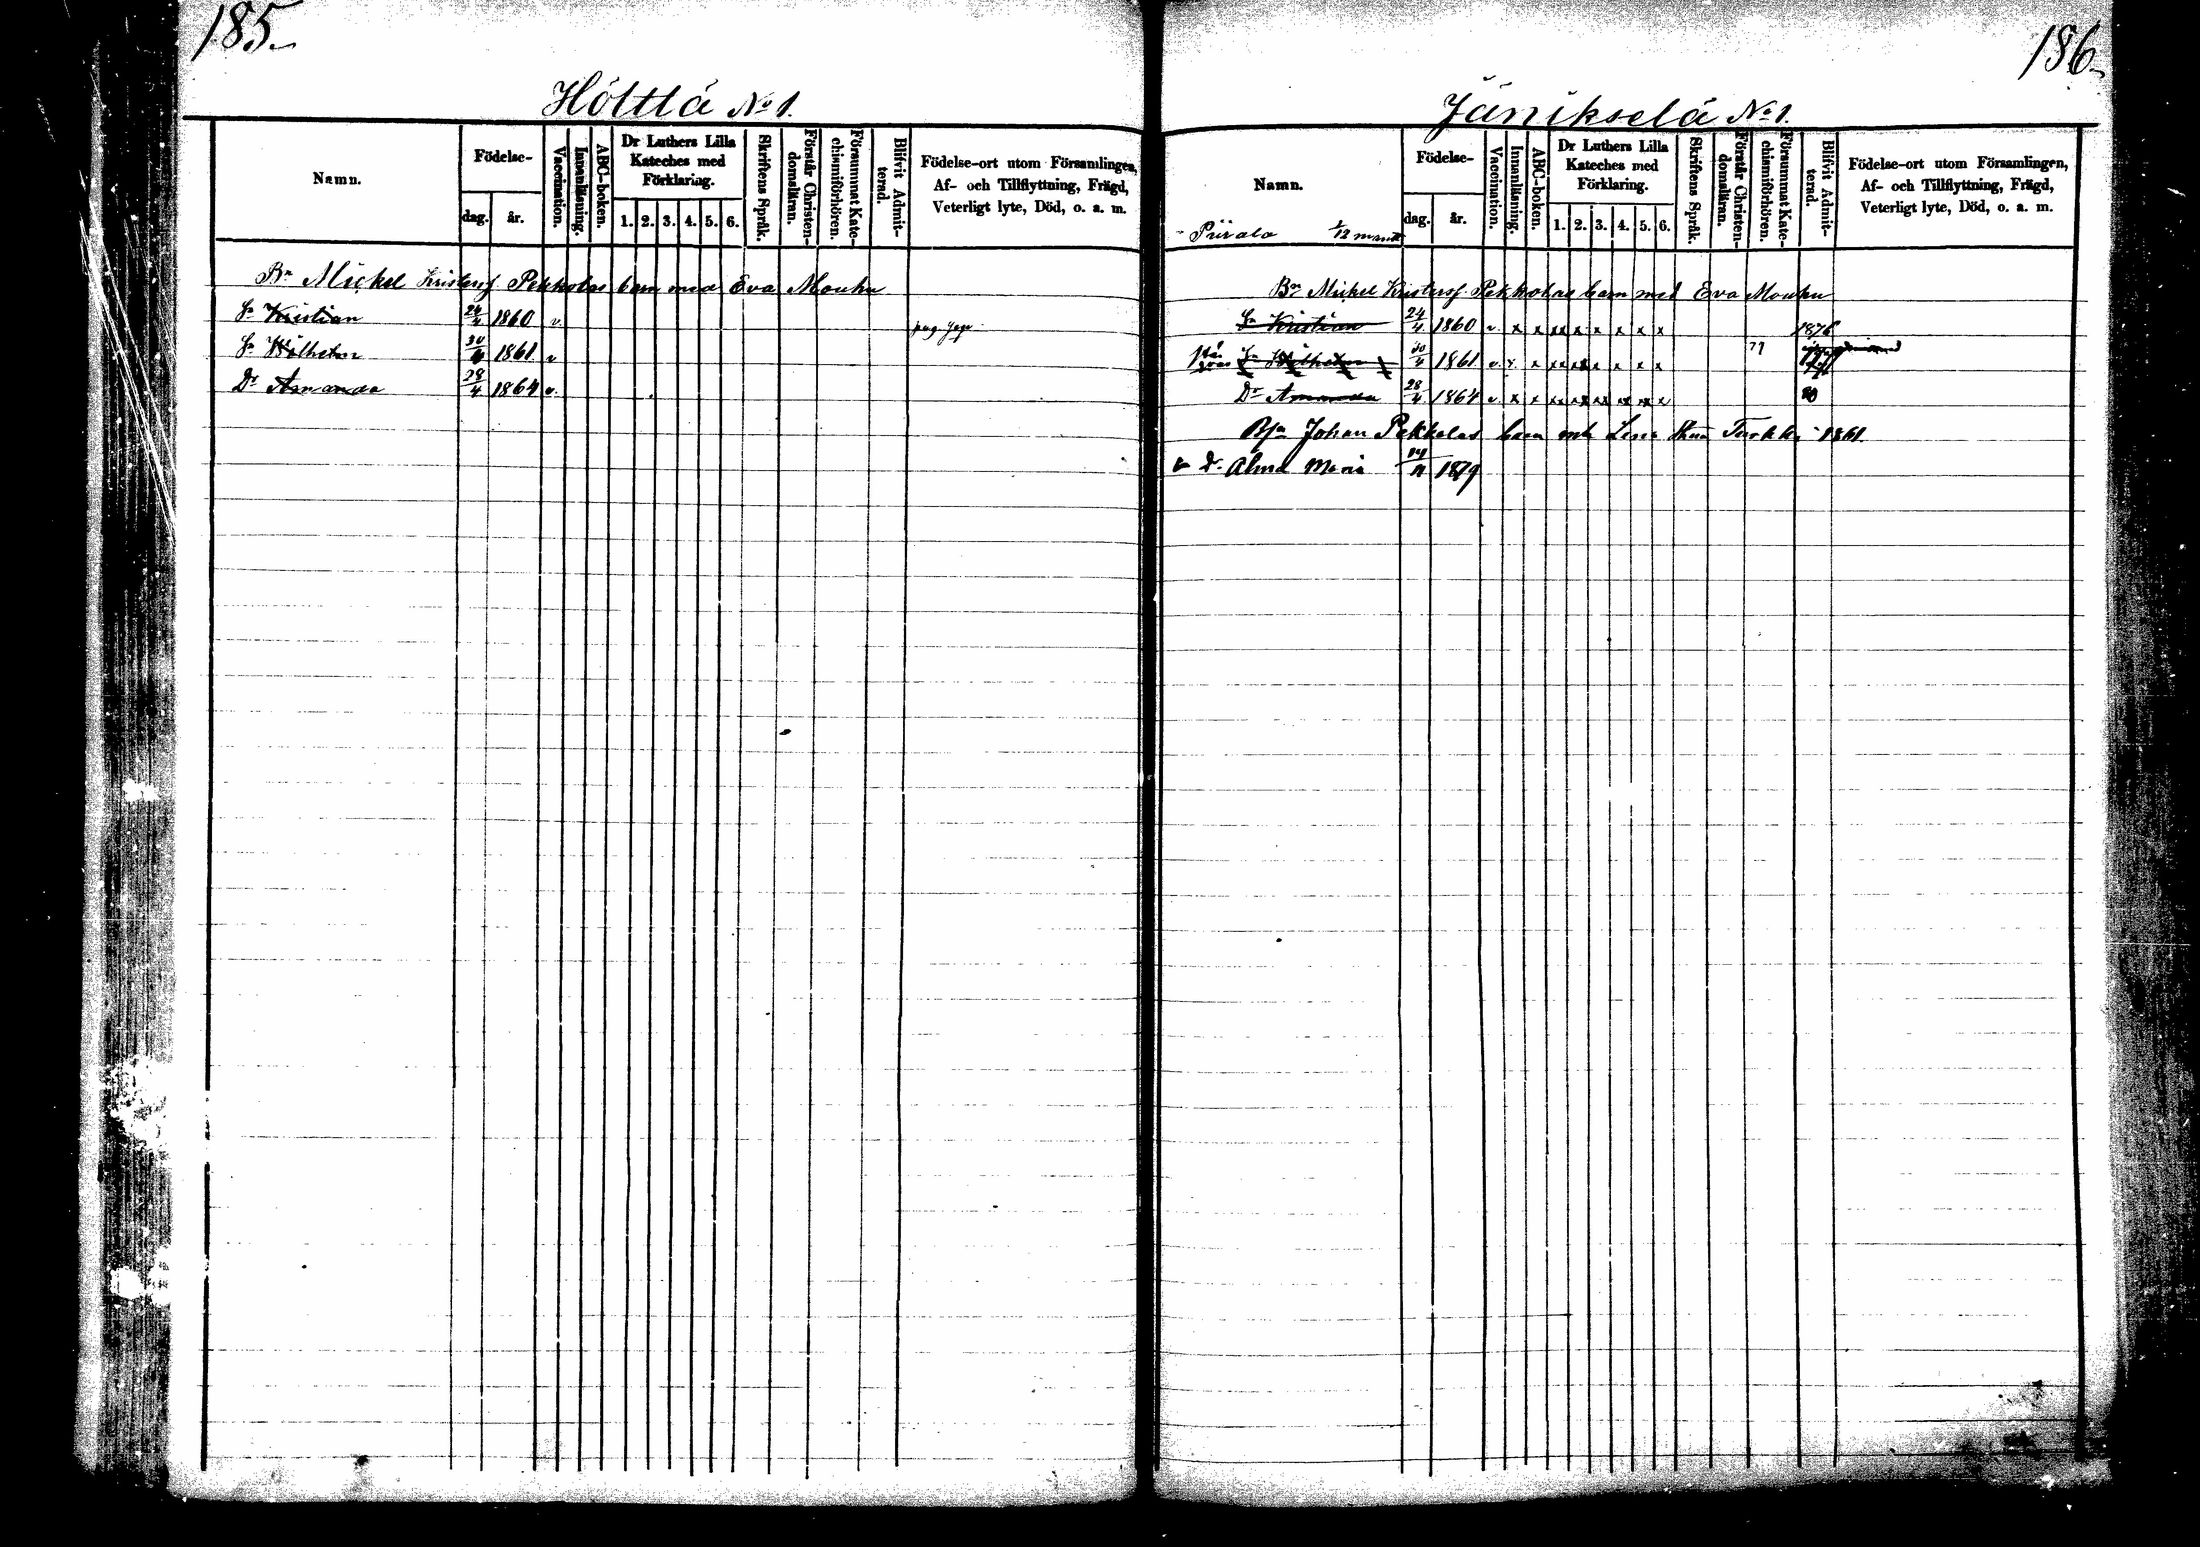 185.
Höltlä No 1.
Namn.
Födelse-
dag. år.
Vaccination.
Innanläsning.
ABC-boken.
Dr Luthers Lilla Kateches med Förklaring.
1. 2. 3. 4. 5. 6.
Skriftens Språk.
Förstår Christen-domsläran.
Försummat Kate-chismiförhören.
Blifvit Admit-terad.
Födelse-ort utom Församlingen,
Af- och Tillflyttning, Frägd,
Veterligt lyte, Död, o. a. m.
Bn Mickel Kristersf. Pekkolas barn med Eva Mouhu
Sn Kristian 24/4 1860 v.
Sn Wilhelm 30/4 1861 v
Dr Amanda 28/4 1864 v.
186.
Jänikselä No 1.
Namn.
Födelse-
dag. år.
Vaccination.
Innanläsning.
ABC-boken.
Dr Luthers Lilla Kateches med Förklaring.
1. 2. 3. 4. 5. 6.
Skriftens Språk.
Förstår Christen-domsläran.
Försummat Kate-chismiförhören.
Blifvit Admit-terad.
Födelse-ort utom Församlingen,
Af- och Tillflyttning, Frägd,
Veterligt lyte, Död, o. a. m.
Piirala 1/12 mantl
Bn Mickel Kristersf. Pekkolas barn med Eva Mouhu
Sn Kristian 24/4 1860 v. x x xx x x x x x 1876
Sn Wilhelm 30/4 1861 v. x. x xx xx x x x x 77
Dr Amanda 28/4 1864 v x x xx xx xx xx xx x 80
Johan Pekkolas barn Lena Turkki 1861.
Dr Alma Maria 1879